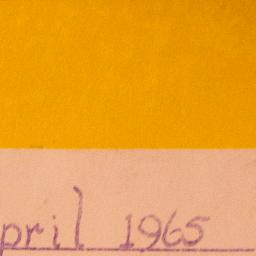 pril 1965